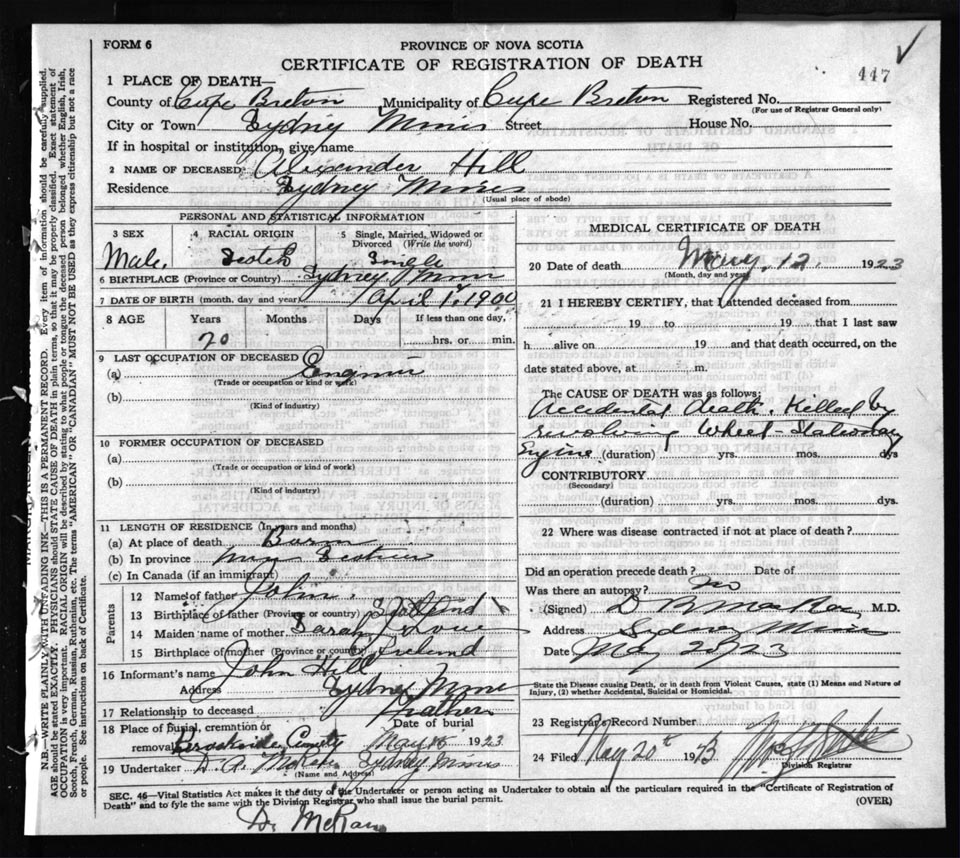 FORM 6
PROVINCE OF NOVA SCOTIA
CERTIFICATE OF REGISTRATION OF DEATH
447
1 PLACE OF DEATH—
County of Cape Breton Municipality of Cape Breton Registered No.
(For use of Registrar General only)
City or Town Sydney Mines Street House No.
If in hospital or institution, give name
2 NAME OF DECEASED: Alexander Hill
Residence Sydney Mines
(Usual place of abode)
PERSONAL AND STATISTICAL INFORMATION
3 SEX 4 RACIAL ORIGIN 5 Single, Married, Widowed or Divorced (Write the word)
Male. Scotch Single
6 BIRTHPLACE (Province or Country) Sydney Mines
7 DATE OF BIRTH (month, day and year) April 1, 1900
8 AGE Years Months Days If less than one day,
20 hrs. or min.
9 LAST OCCUPATION OF DECEASED
(a) Engineer
(Trade or occupation or kind or work)
(b)
(Kind of industry)
10 FORMER OCCUPATION OF DECEASED
(a)
(Trade or occupation or kind of work)
(b)
(Kind of industry)
11 LENGTH OF RESIDENCE (In years and months)
(a) At place of death Born
(b) In province Nova Scotia
(c) In Canada (if an immigrant)
Parents
12 Name of father John.
13 Birthplace of father (Province or country) Scotland
14 Maiden name of mother Sarah
15 Birthplace of mother (Province or country) Ireland
16 Informant's name John Hill
Address Sydney Mines
17 Relationship to deceased Father
18 Place of burial, cremation or removal Brookside Cemetery Date of burial May 15 1923
19 Undertaker Sydney Mines
(Name and Address)
MEDICAL CERTIFICATE OF DEATH
20 Date of death May, 12, 1923
(Month, day and year)
21 I HEREBY CERTIFY, that I attended deceased from
19 to 19 that I last saw
h alive on 19 and that death occurred, on the
date stated above, at m.
The CAUSE OF DEATH was as follows:
Accidental death. Killed by
revolving Wheel - Stationary
Engine (duration) yrs. mos. dys
CONTRIBUTORY
(Secondary)
(duration) yrs. mos. dys.
22 Where was disease contracted if not at place of death?
Did an operation precede death? Date of
Was there an autopsy? No
(Signed) M.D.
Address Sydney Mines
Date May 20/23
State the Disease causing Death, or in death from Violent Causes, state (1) Means and Nature of Injury, (2) whether Accidental, Suicidal or Homicidal.
23 Registrar's Record Number
24 Filed May 20th 1923
Division Registrar
SEC. 46—Vital Statistics Act makes it the duty of the Undertaker or person acting as Undertaker to obtain all the particulars required in the "Certificate of Registration of
Death" and to fyle the same with the Division Registrar who shall issue the burial permit. (OVER)
N.B.—WRITE PLAINLY WITH UNFADING INK—THIS IS A PERMANENT RECORD. Every item of information should be carefully supplied.
AGE should be stated EXACTLY. PHYSICIANS should STATE CAUSE OF DEATH in plain terms, so that it may be properly classified. Exact statement of
OCCUPATION is very important. RACIAL ORIGIN will be described by stating to what people or tongue the deceased person belonged whether English, Irish,
Scotch, French, German, Russian, Ruthenian, etc. The terms "AMERICAN" or "CANADIAN" MUST NOT BE USED as they express citizenship but not a race
or people. See instructions on back of Certificate.